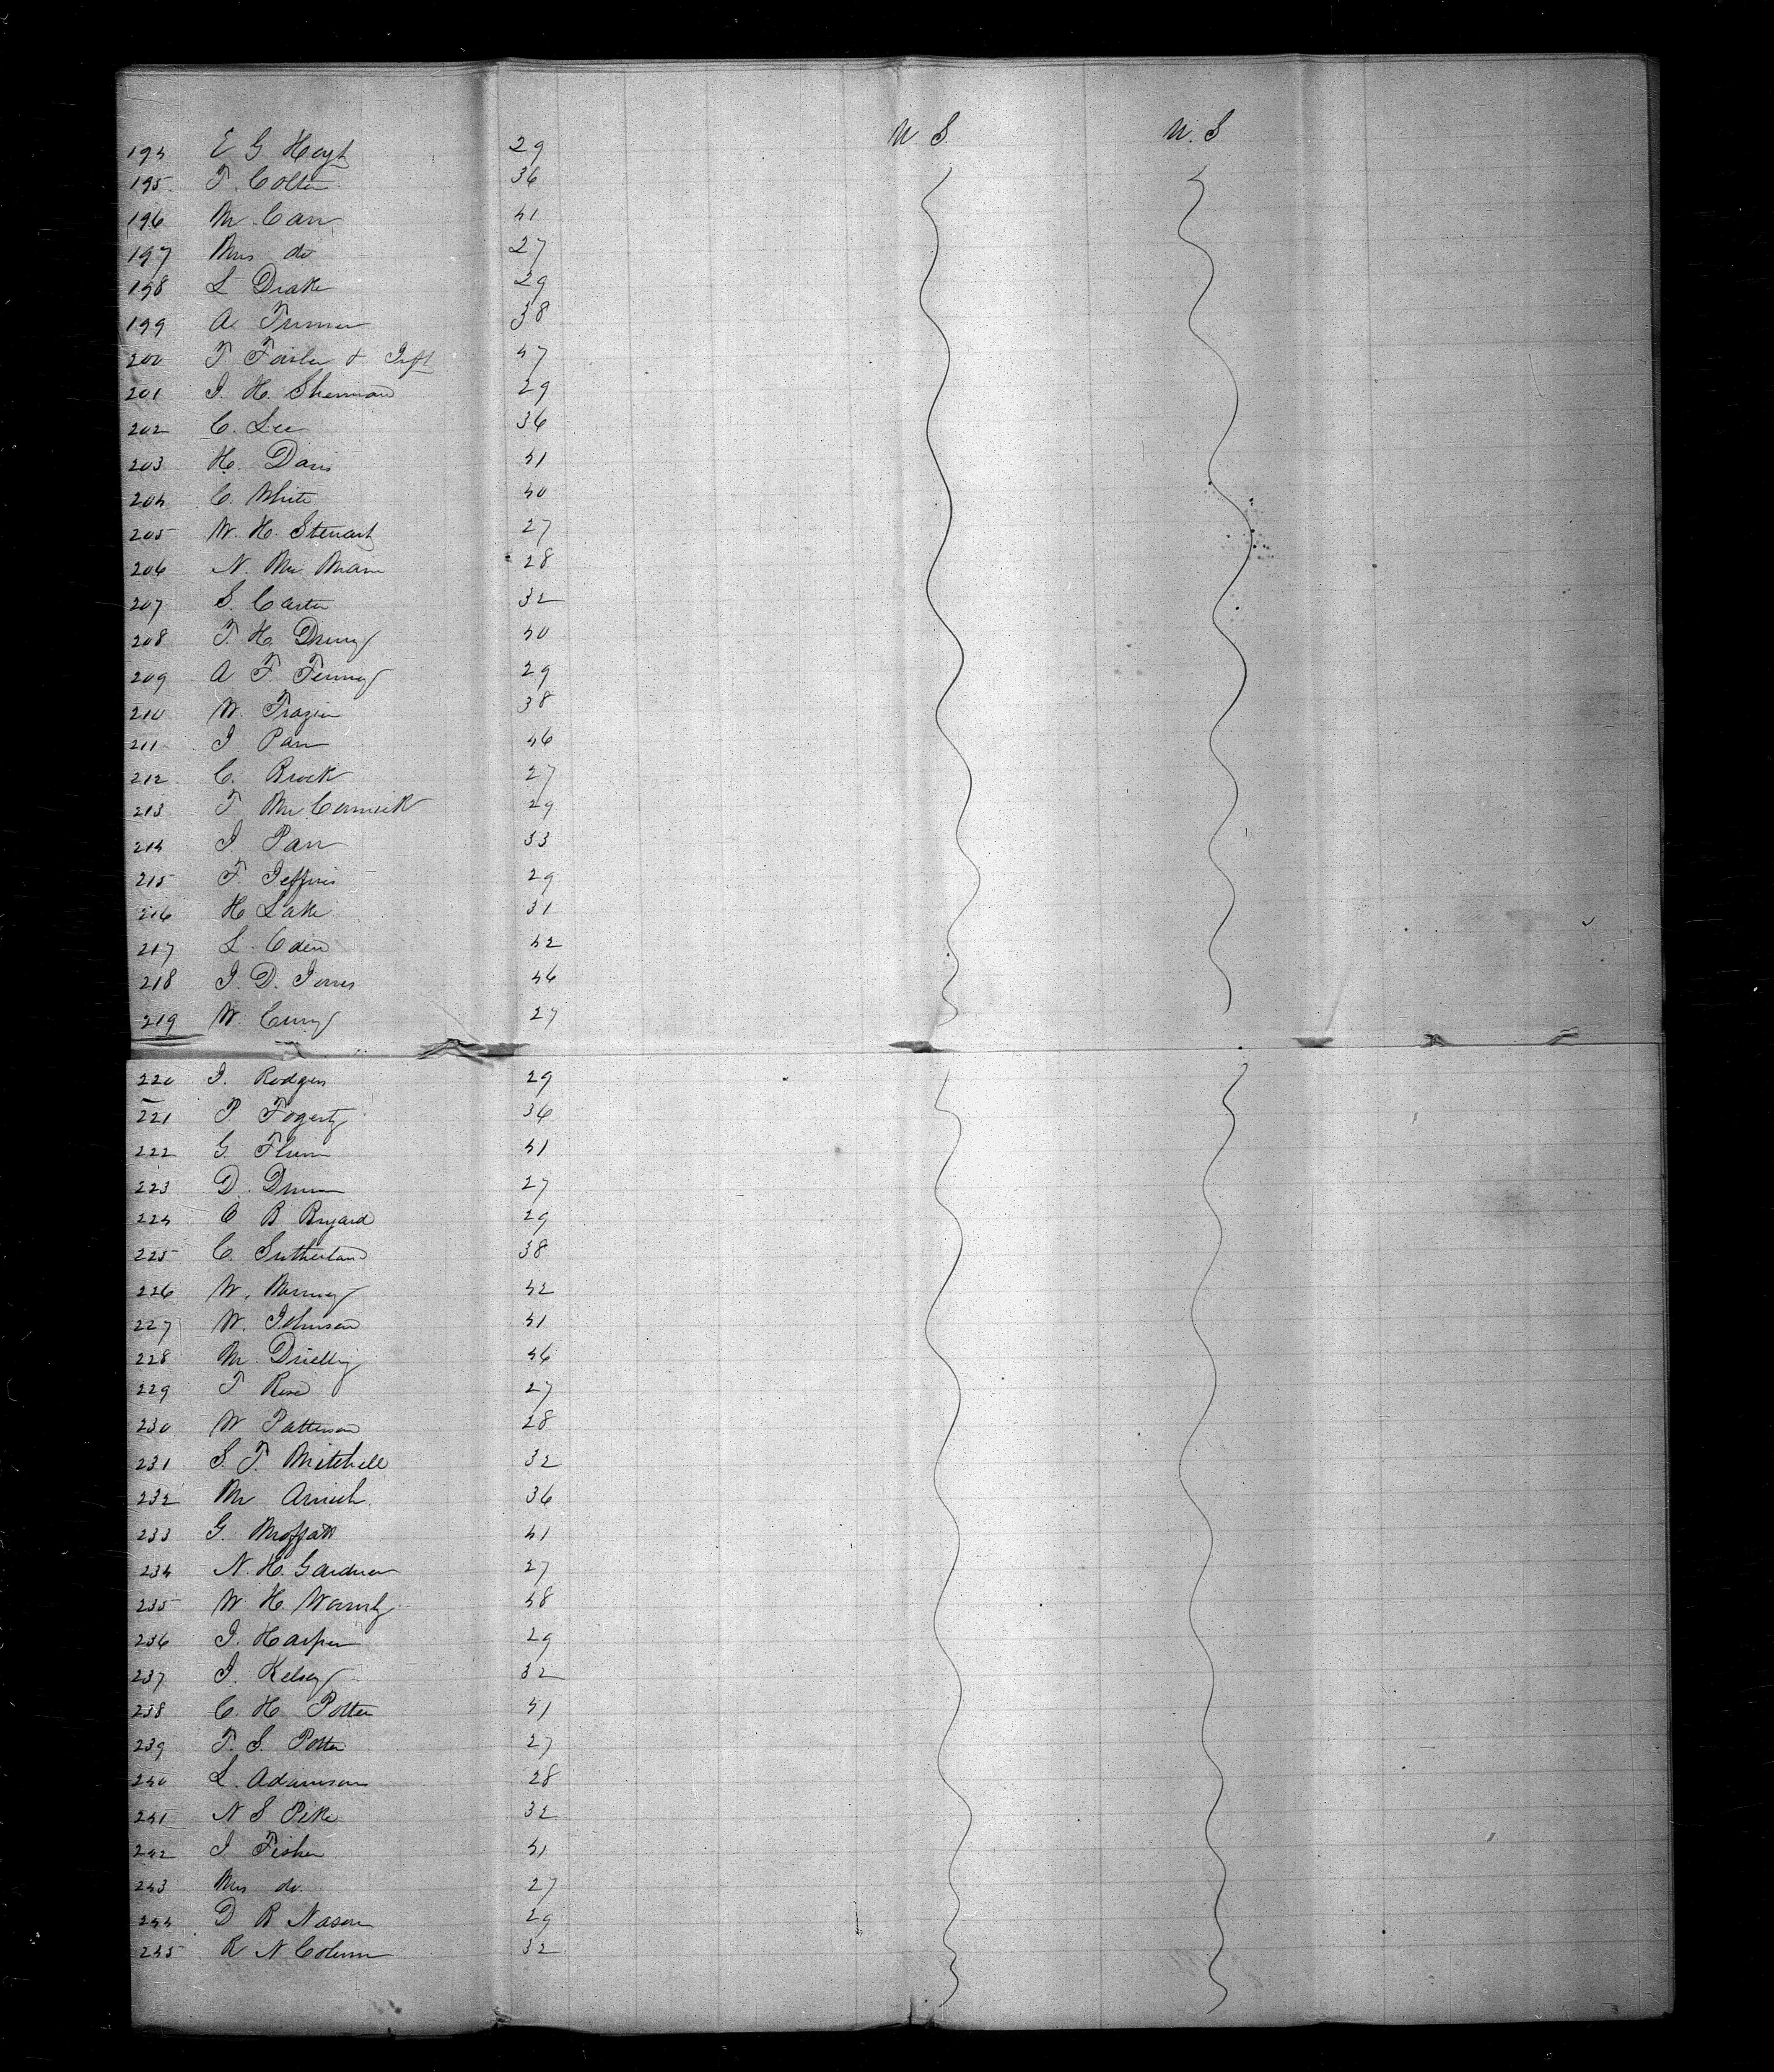 194 E G Hoyt 29 U S U. S
195 T. Colter 36
196 M. Carr 41
197 Mrs do 27
198 L Drake 29
199 A 38
200 T & 47
201 J. H. Sherman 29
202 C. Lee 36
203 H. Davis 41
204 C. White 40
205 W. H. Stewart 27
206 N. 28
207 S. Carter 32
208 T. H. Drury 40
209 A F. Fenney 29
210 W. Frazier 38
211 J Parr 46
212 C. Brock 27
213 T McCormick 29
214 J Parr 33
215 F. Jeffries 29
216 H Lake 31
217 L. Eden 42
218 J. D. Jones 46
219 W. Curry 27
220 J. Rodgers 29
221 P Fogerty 36
222 G. 41
223 D. 27
224 C B Bryard 29
225 C. Sutherland 38
226 W. Murray 42
227 W. Johnson 41
228 M. 46
229 T 27
230 W Patterson 28
231 S. T. Mitchell 32
232 Mr 36
233 G. Moffatt 41
234 N. H. Gardner 27
235 W. H. 48
236 J. Harper 29
237 J. Kelsey 32
238 C. H. Potter 41
239 T. S. Potter 27
240 L. Adamson 28
241 N S Pike 32
242 J Fisher 41
243 Mrs do. 27
244 D R Nason 29
245 R N 32